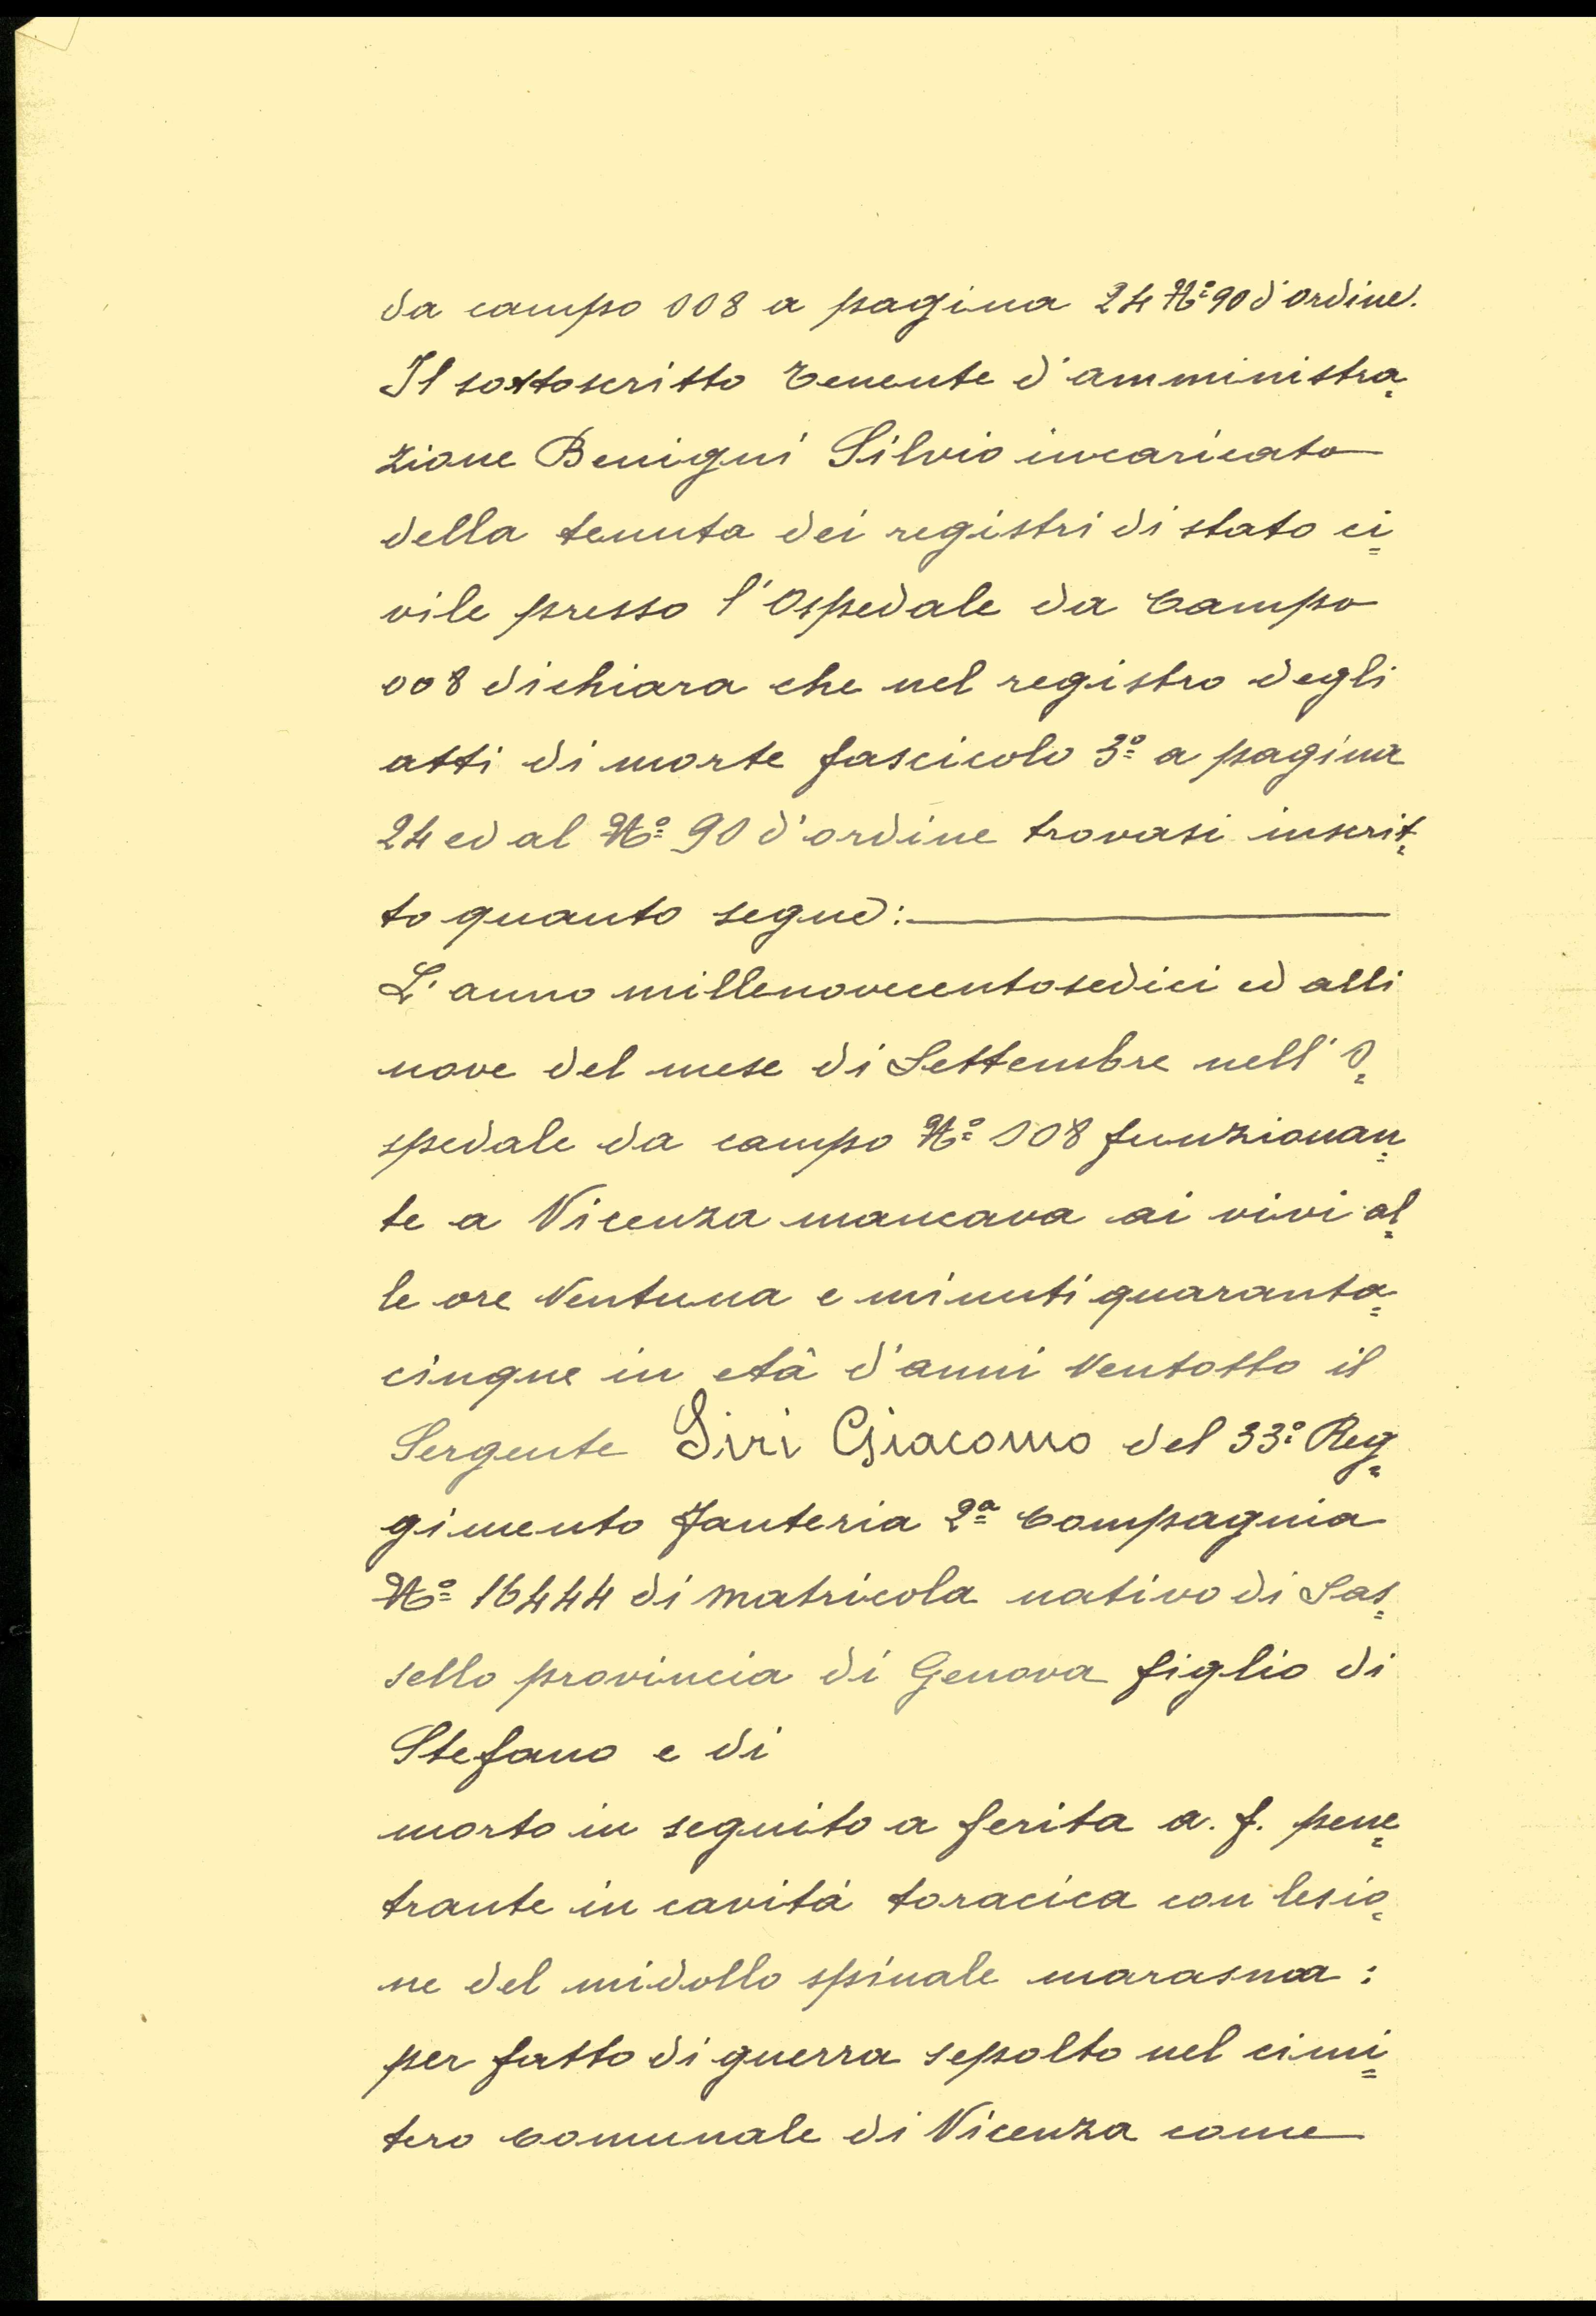 da campo 008 a pagina 24 Nº 90 d'ordine.
Il sottoscritto Tenente d'amministra=
zione Benigni Silvio incaricato
della tenuta dei registri di stato ci=
vile presso l'Ospedale da Campo
008 dichiara che nel registro degli
atti di morte fascicolo 3º a pagina
24 ed al Nº 90 d'ordine trovasi inscrit=
to quanto segue:
L'anno millenovecentosedici ed alli
nove del mese di Settembre nell'O=
spedale da campo Nº 008 funzionan=
te a Vicenza mancava ai vivi al=
le ore Ventuna e minuti quaranta=
cinque in età d'anni Ventotto il
Sergente Siri Giacomo del 33º Reg=
gimento Fanteria 2ª Compagnia
Nº 16444 di matricola nativo di Sas=
sello provincia di Genova figlio di
Stefano e di
morto in seguito a ferita a. f. pene=
trante in cavità toracica con lesio=
ne del midollo spinale marasma:
per fatto di guerra sepolto nel cimi=
tero Comunale di Vicenza come